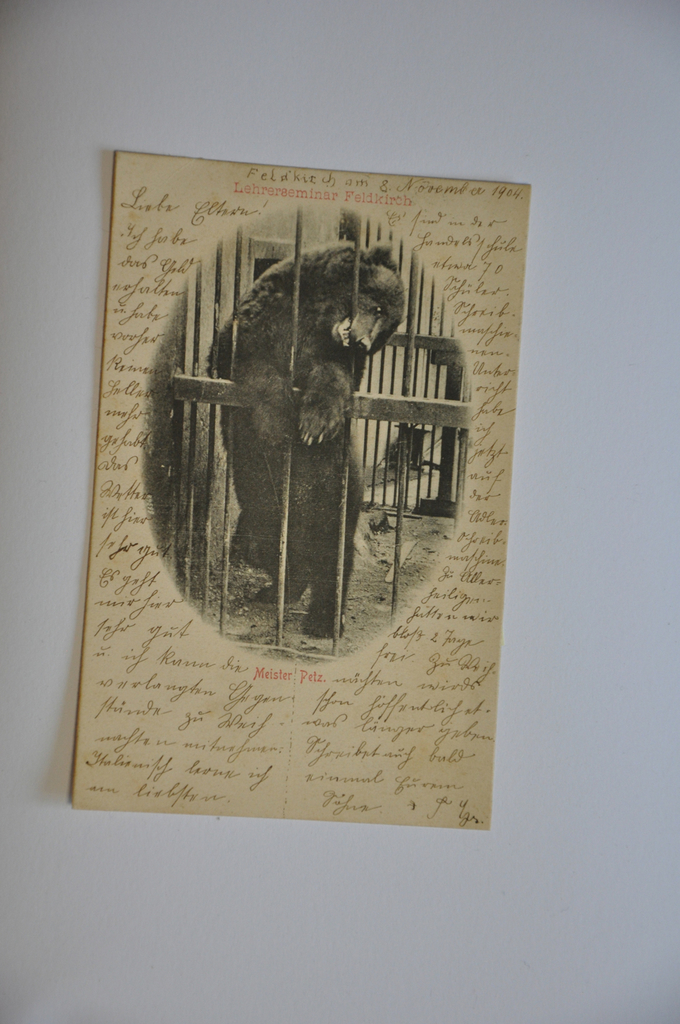 Feldkirch am 8. November 1904.
Lehrerseminar Feldkirch
Liebe Eltern!
Ich habe
das Geld
erhalten
u. habe
vorher
keinen
Heller
mehr
gehabt
Das
Wetter
ist hier
sehr gut
Es geht
mir hier
sehr gut
u. ich kann die
verlangten Gegen-
stände zu Weih-
nachten mitnehmen.
Italienisch lerne ich
am liebsten.
Es sind in der
Handelsschule
etwa 70
Schüler.
Schreib-
maschi-
nen-
Unter-
richt
habe
ich
jetzt
auf
der
Adler-
Schreib-
maschine.
Zu Aller-
heiligen
hatten wir
bloß 2 Tage
frei. Zu Weih-
nachten wirds
schon hoffentlich et-
was länger geben.
Schreibet auch bald
einmal Eurem
Sohne.
Meister Petz.